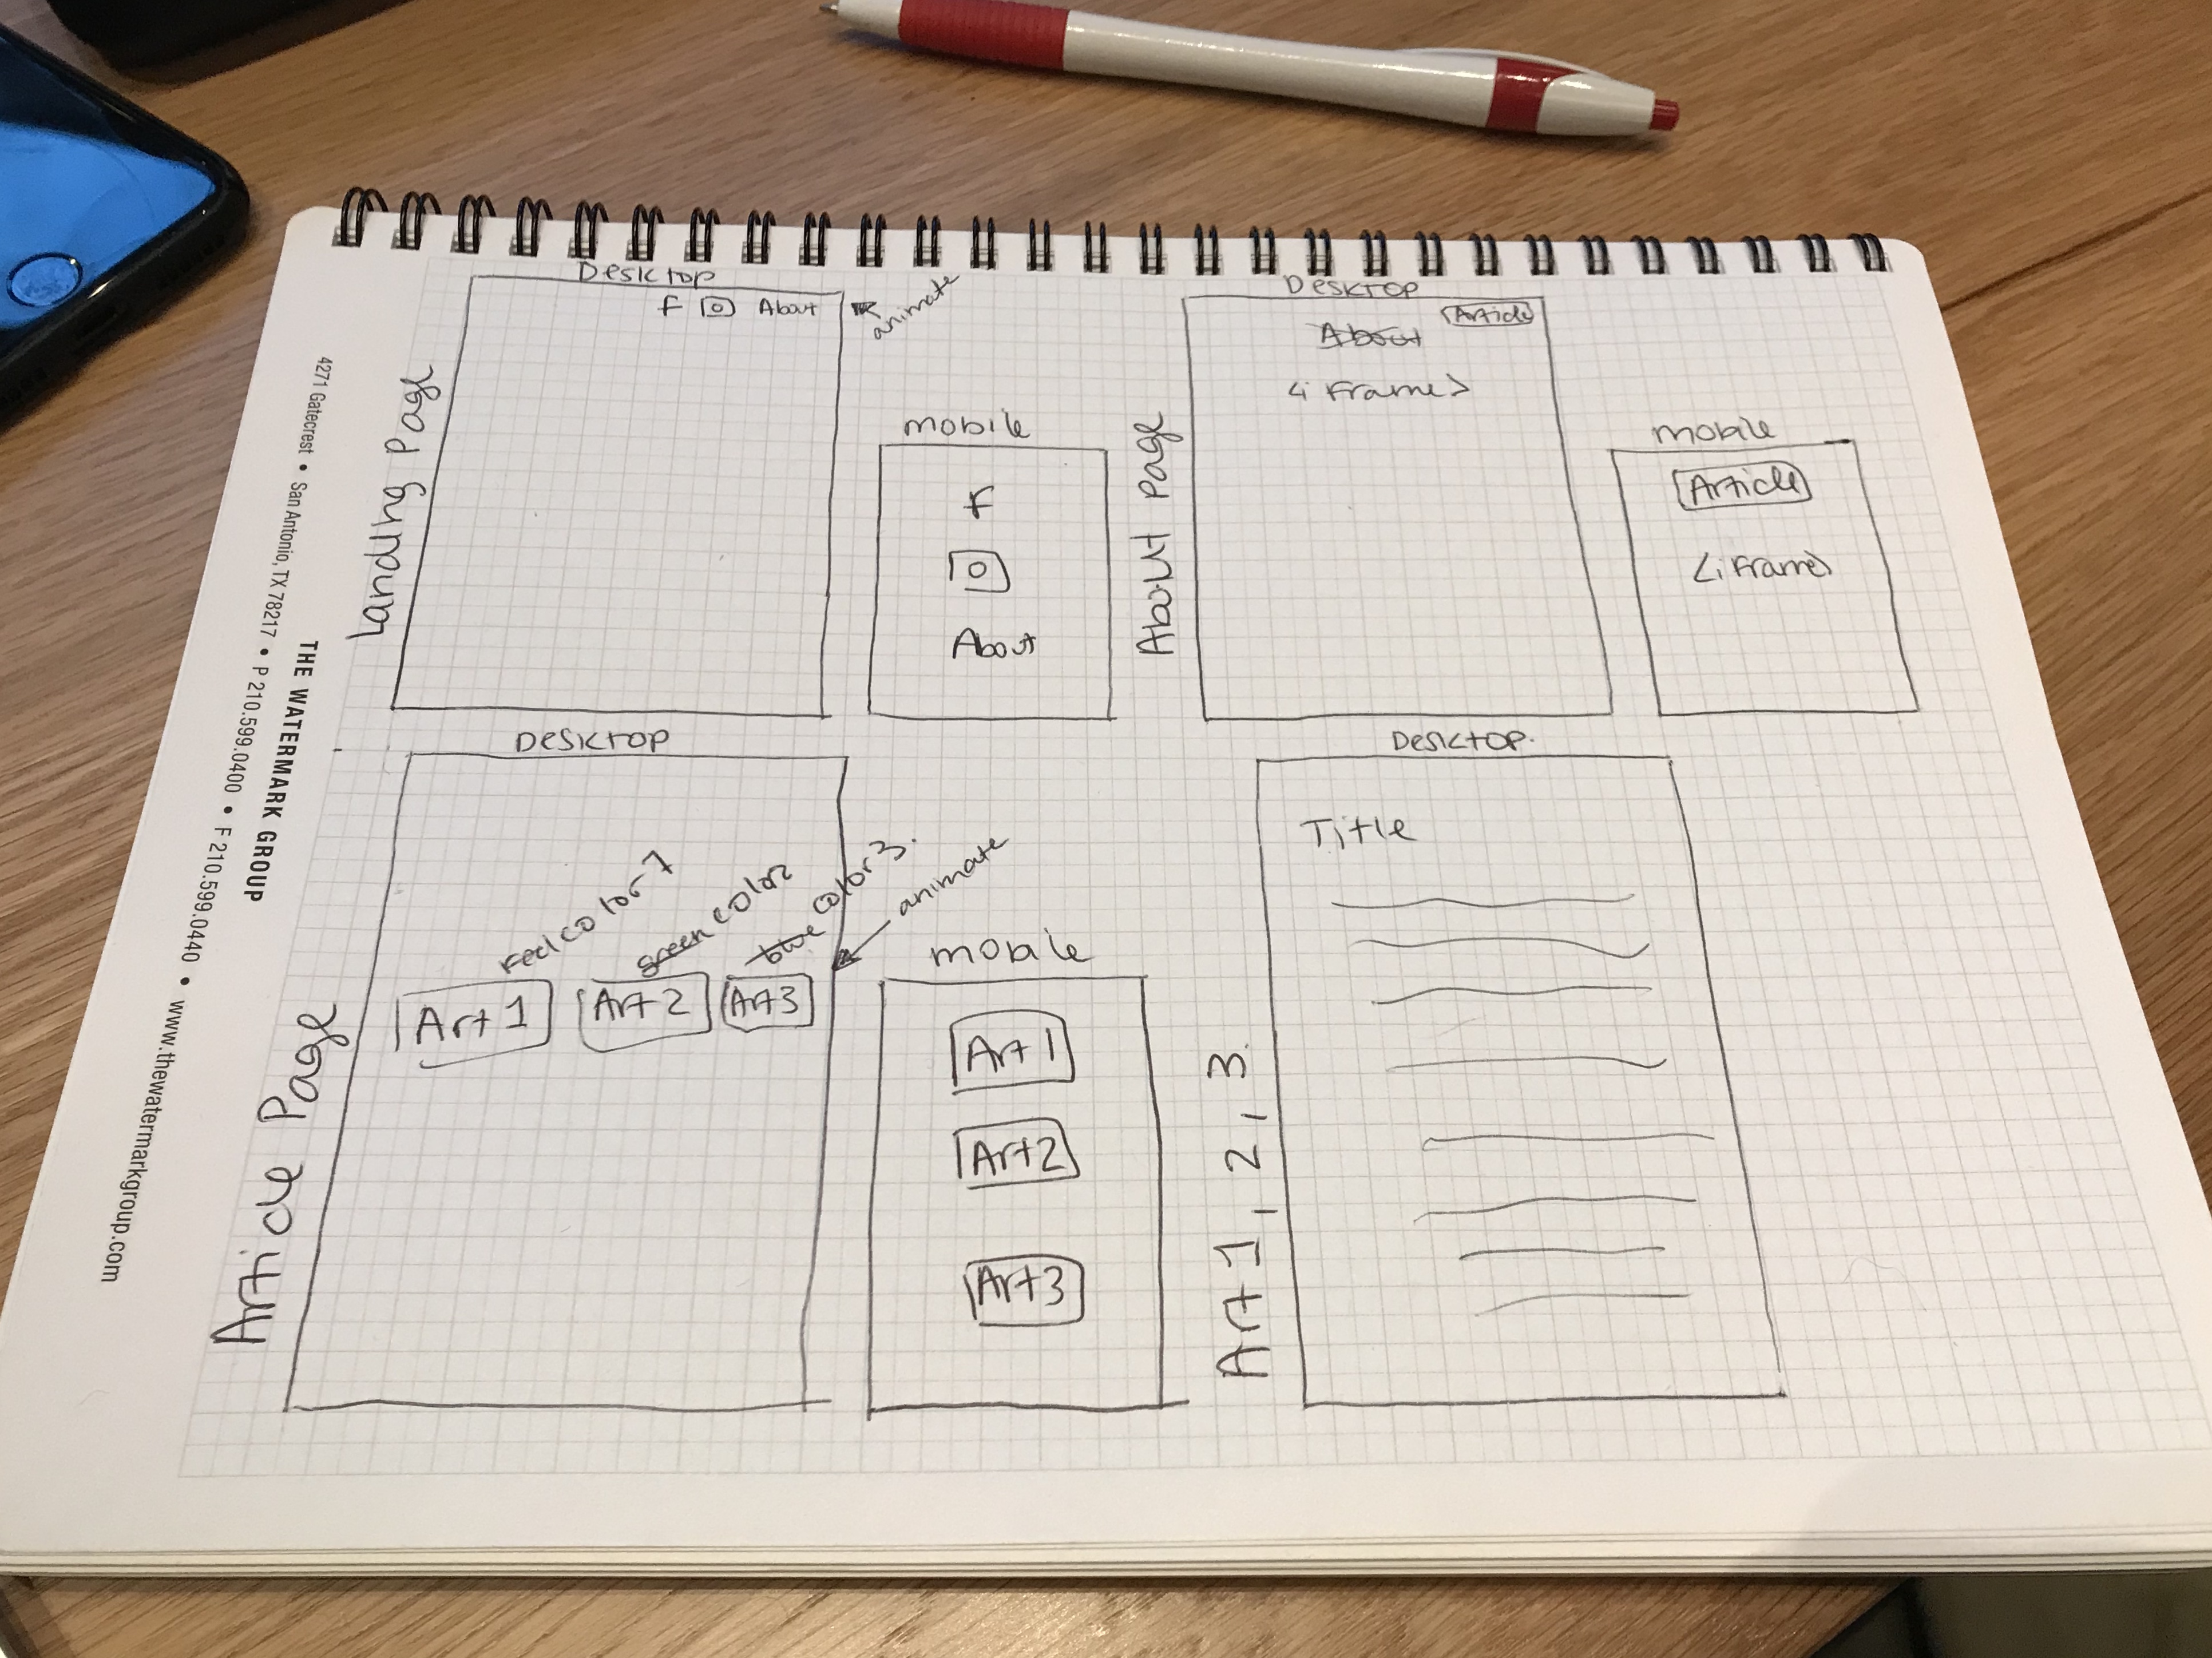 4271 Gatecrest • San Antonio, TX 78217 • P 210.599.0400 • F 210.599.0440 • www.thewatermarkgroup.com
THE WATERMARK GROUP
Landing Page
Desktop
f About
animate
mobile
f
About
About Page
Desktop
Article
About
<iFrame>
mobile
Article
<iFrame>
Article Page
Desktop
red color 1
green color 2
blue color 3.
animate
Art 1
Art 2
Art 3
mobile
Art 1
Art 2
Art 3
Art 1, 2, 3.
Desktop.
Title